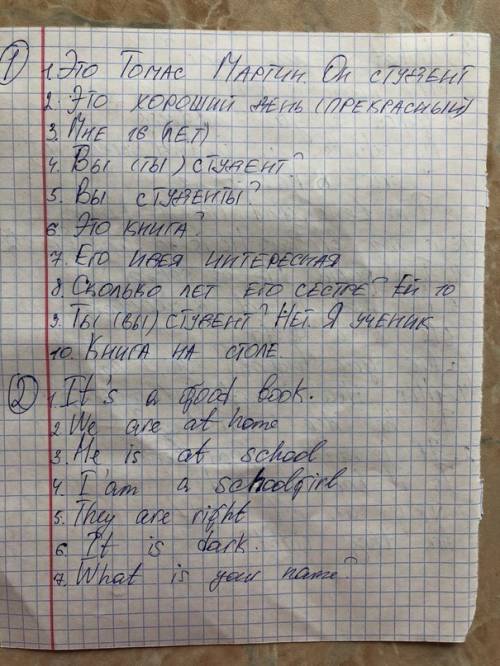 ① 1. Это Томас Мартин. Он студент
2. Это хороший день (прекрасный)
3. Мне 16 (лет)
4. Вы (ты) студент?
5. Вы студенты?
6. Это книга?
7. Его идея интересная
8. Сколько лет его сестре? Ей 10
9. Ты (вы) студент? Нет. Я ученик
10. Книга на столе.
② 1. It's a good book.
2. We are at home
3. He is at school
4. I am a schoolgirl
5. They are right
6. It is dark.
7. What is your name?